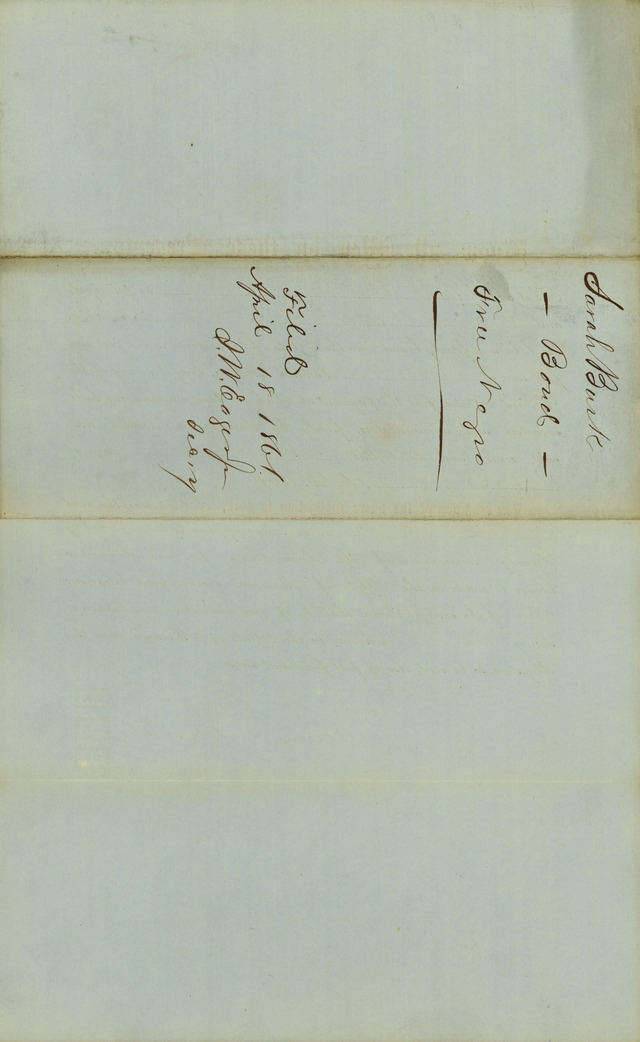 Sarah Burk
— Bond —
Free Negro
Filed
April 18 1861.